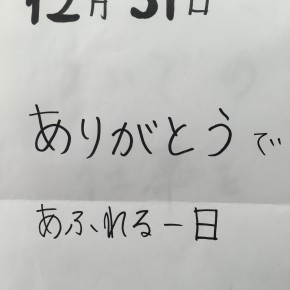 12月31日
ありがとうで
あふれる一日